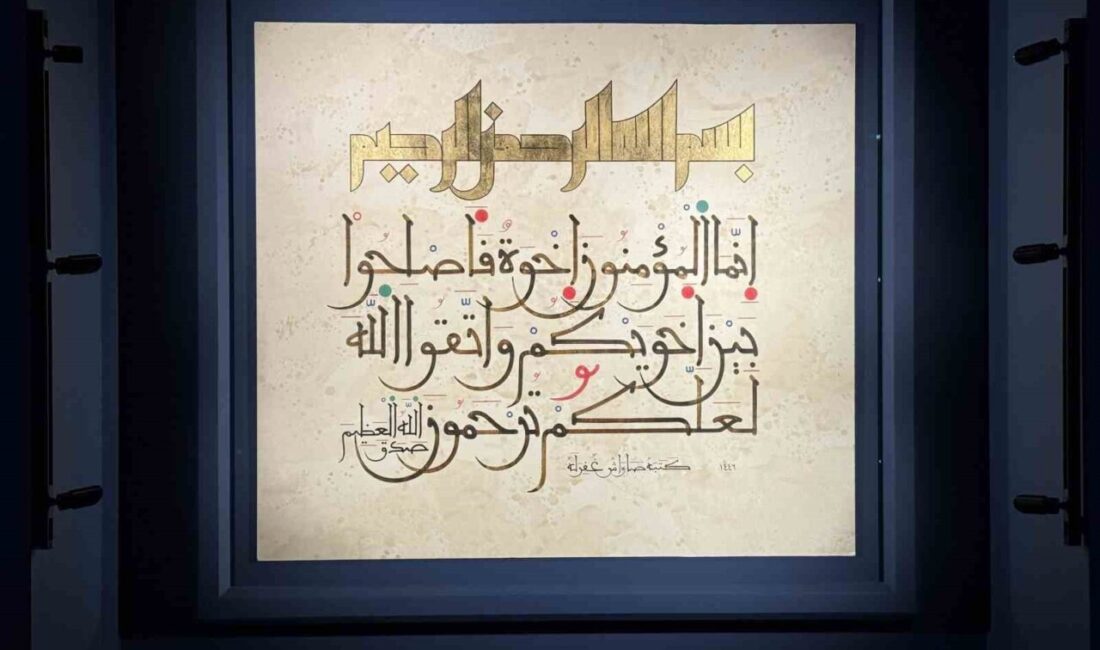 بسم الله الرحمن الرحيم
إِنَّمَا الْمُؤْمِنُونَ إِخْوَةٌ فَأَصْلِحُوا
بَيْنَ أَخَوَيْكُمْ وَاتَّقُوا اللَّهَ
لَعَلَّكُمْ تُرْحَمُونَ
صدق الله العظيم
كتبه صاواش غفرله ١٤٤٦